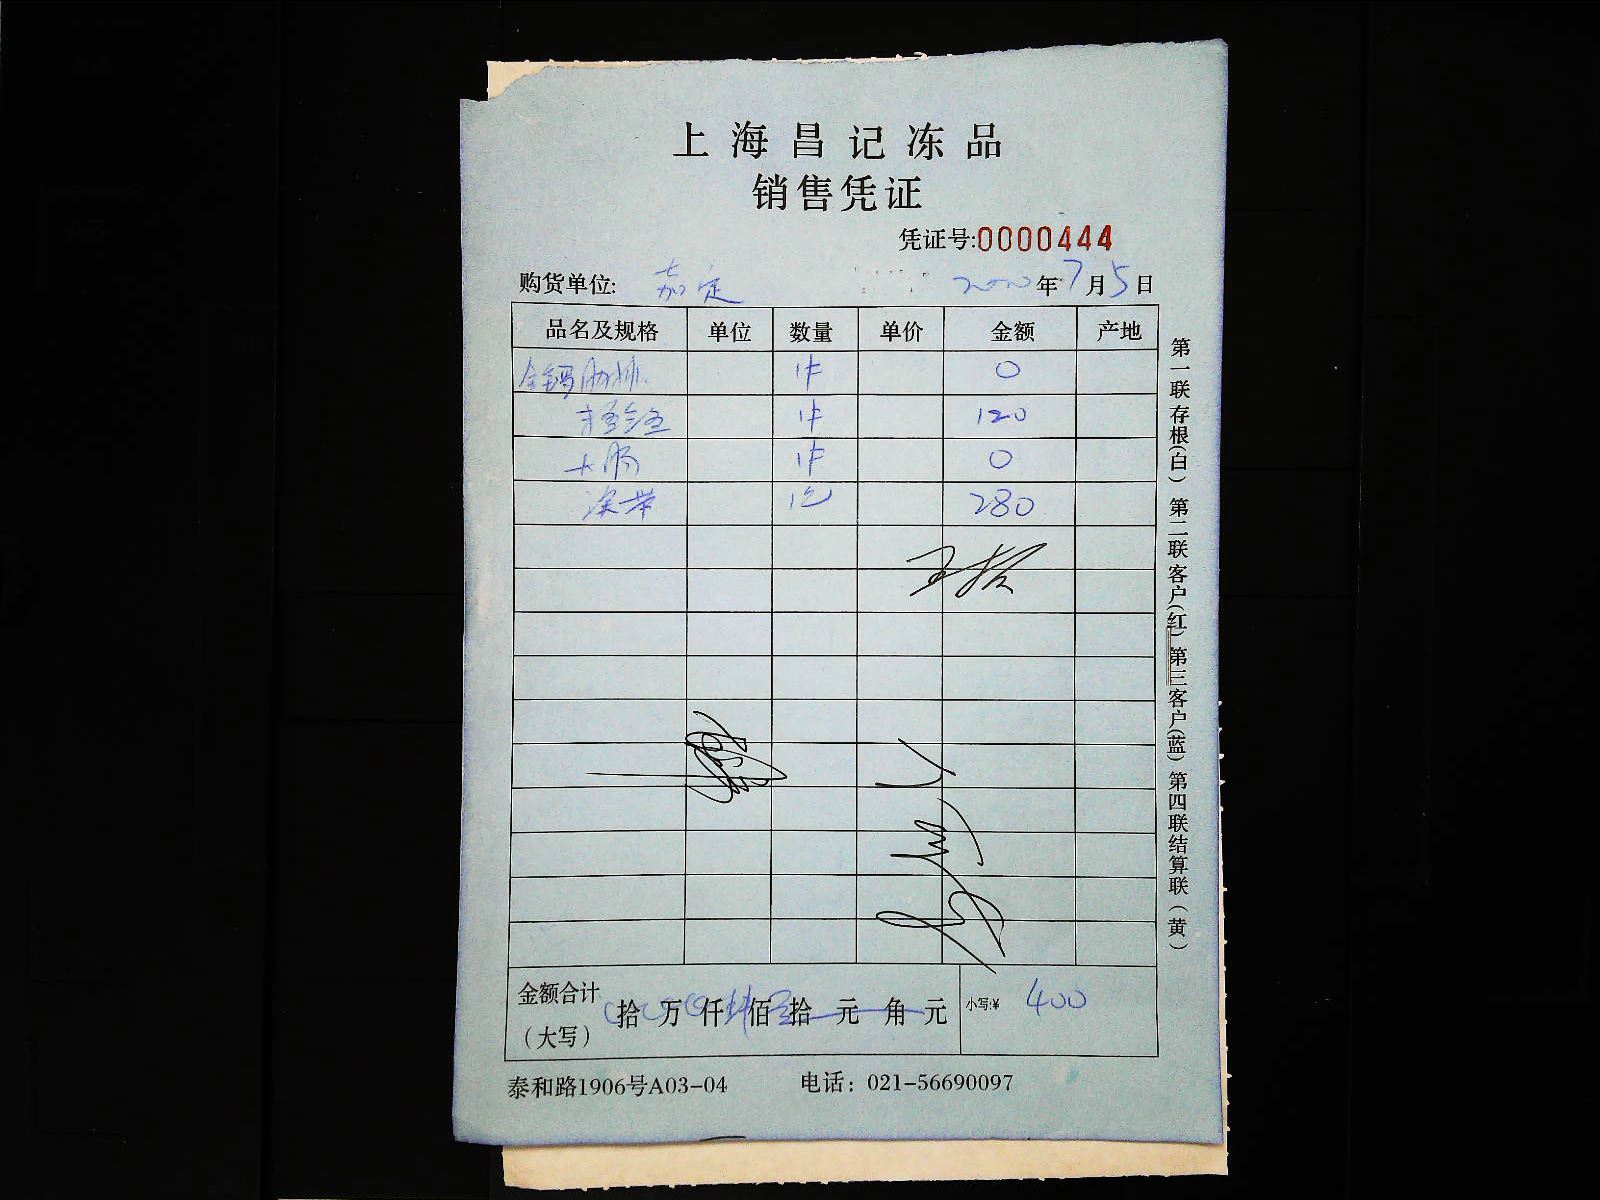 上海昌记冻品
销售凭证
凭证号:0000444
购货单位: 嘉定 2020年7月5日
品名及规格 单位 数量 单价 金额 产地
1件 0
1件 120
大肠 1件 0
1包 280
金额合计（大写） 拾 万 仟 佰 拾 元 角 元 小写:¥ 400
泰和路1906号A03-04 电话：021-56690097
第一联存根(白) 第二联客户(红) 第三客户(蓝) 第四联结算联(黄)